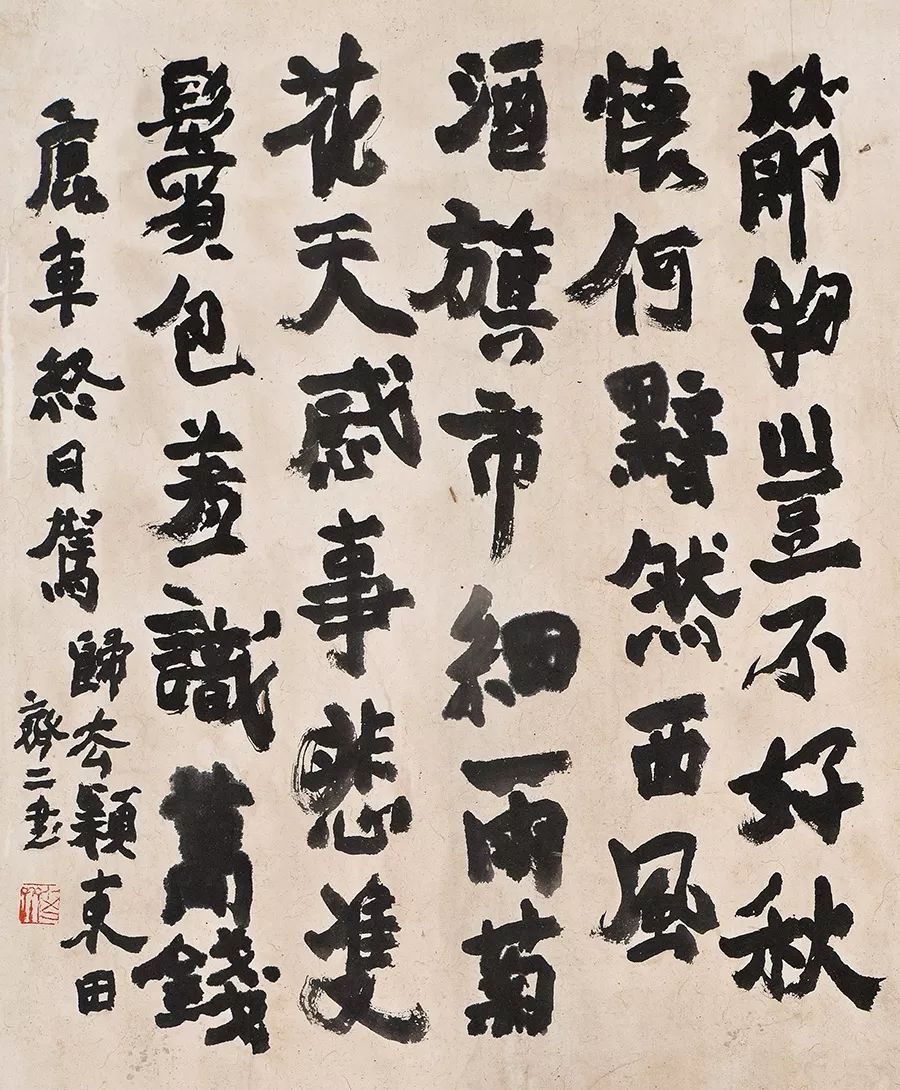 節物豈不好秋
懷何黯然西風
酒旗市細雨菊
花天感事悲隻
鬢包羞識萬錢
鹿車終日駕
歸去穎東田
齊二書